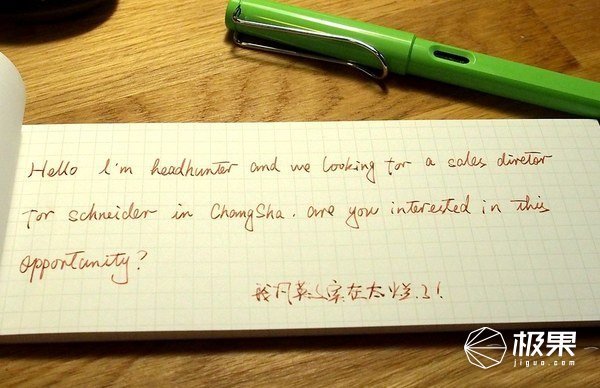 Hello I'm headhunter and we looking for a sales diretor
for schneider in ChangSha. are you interested in this
opportunity?
我的英文实在太烂了!
极果
jiguo.com